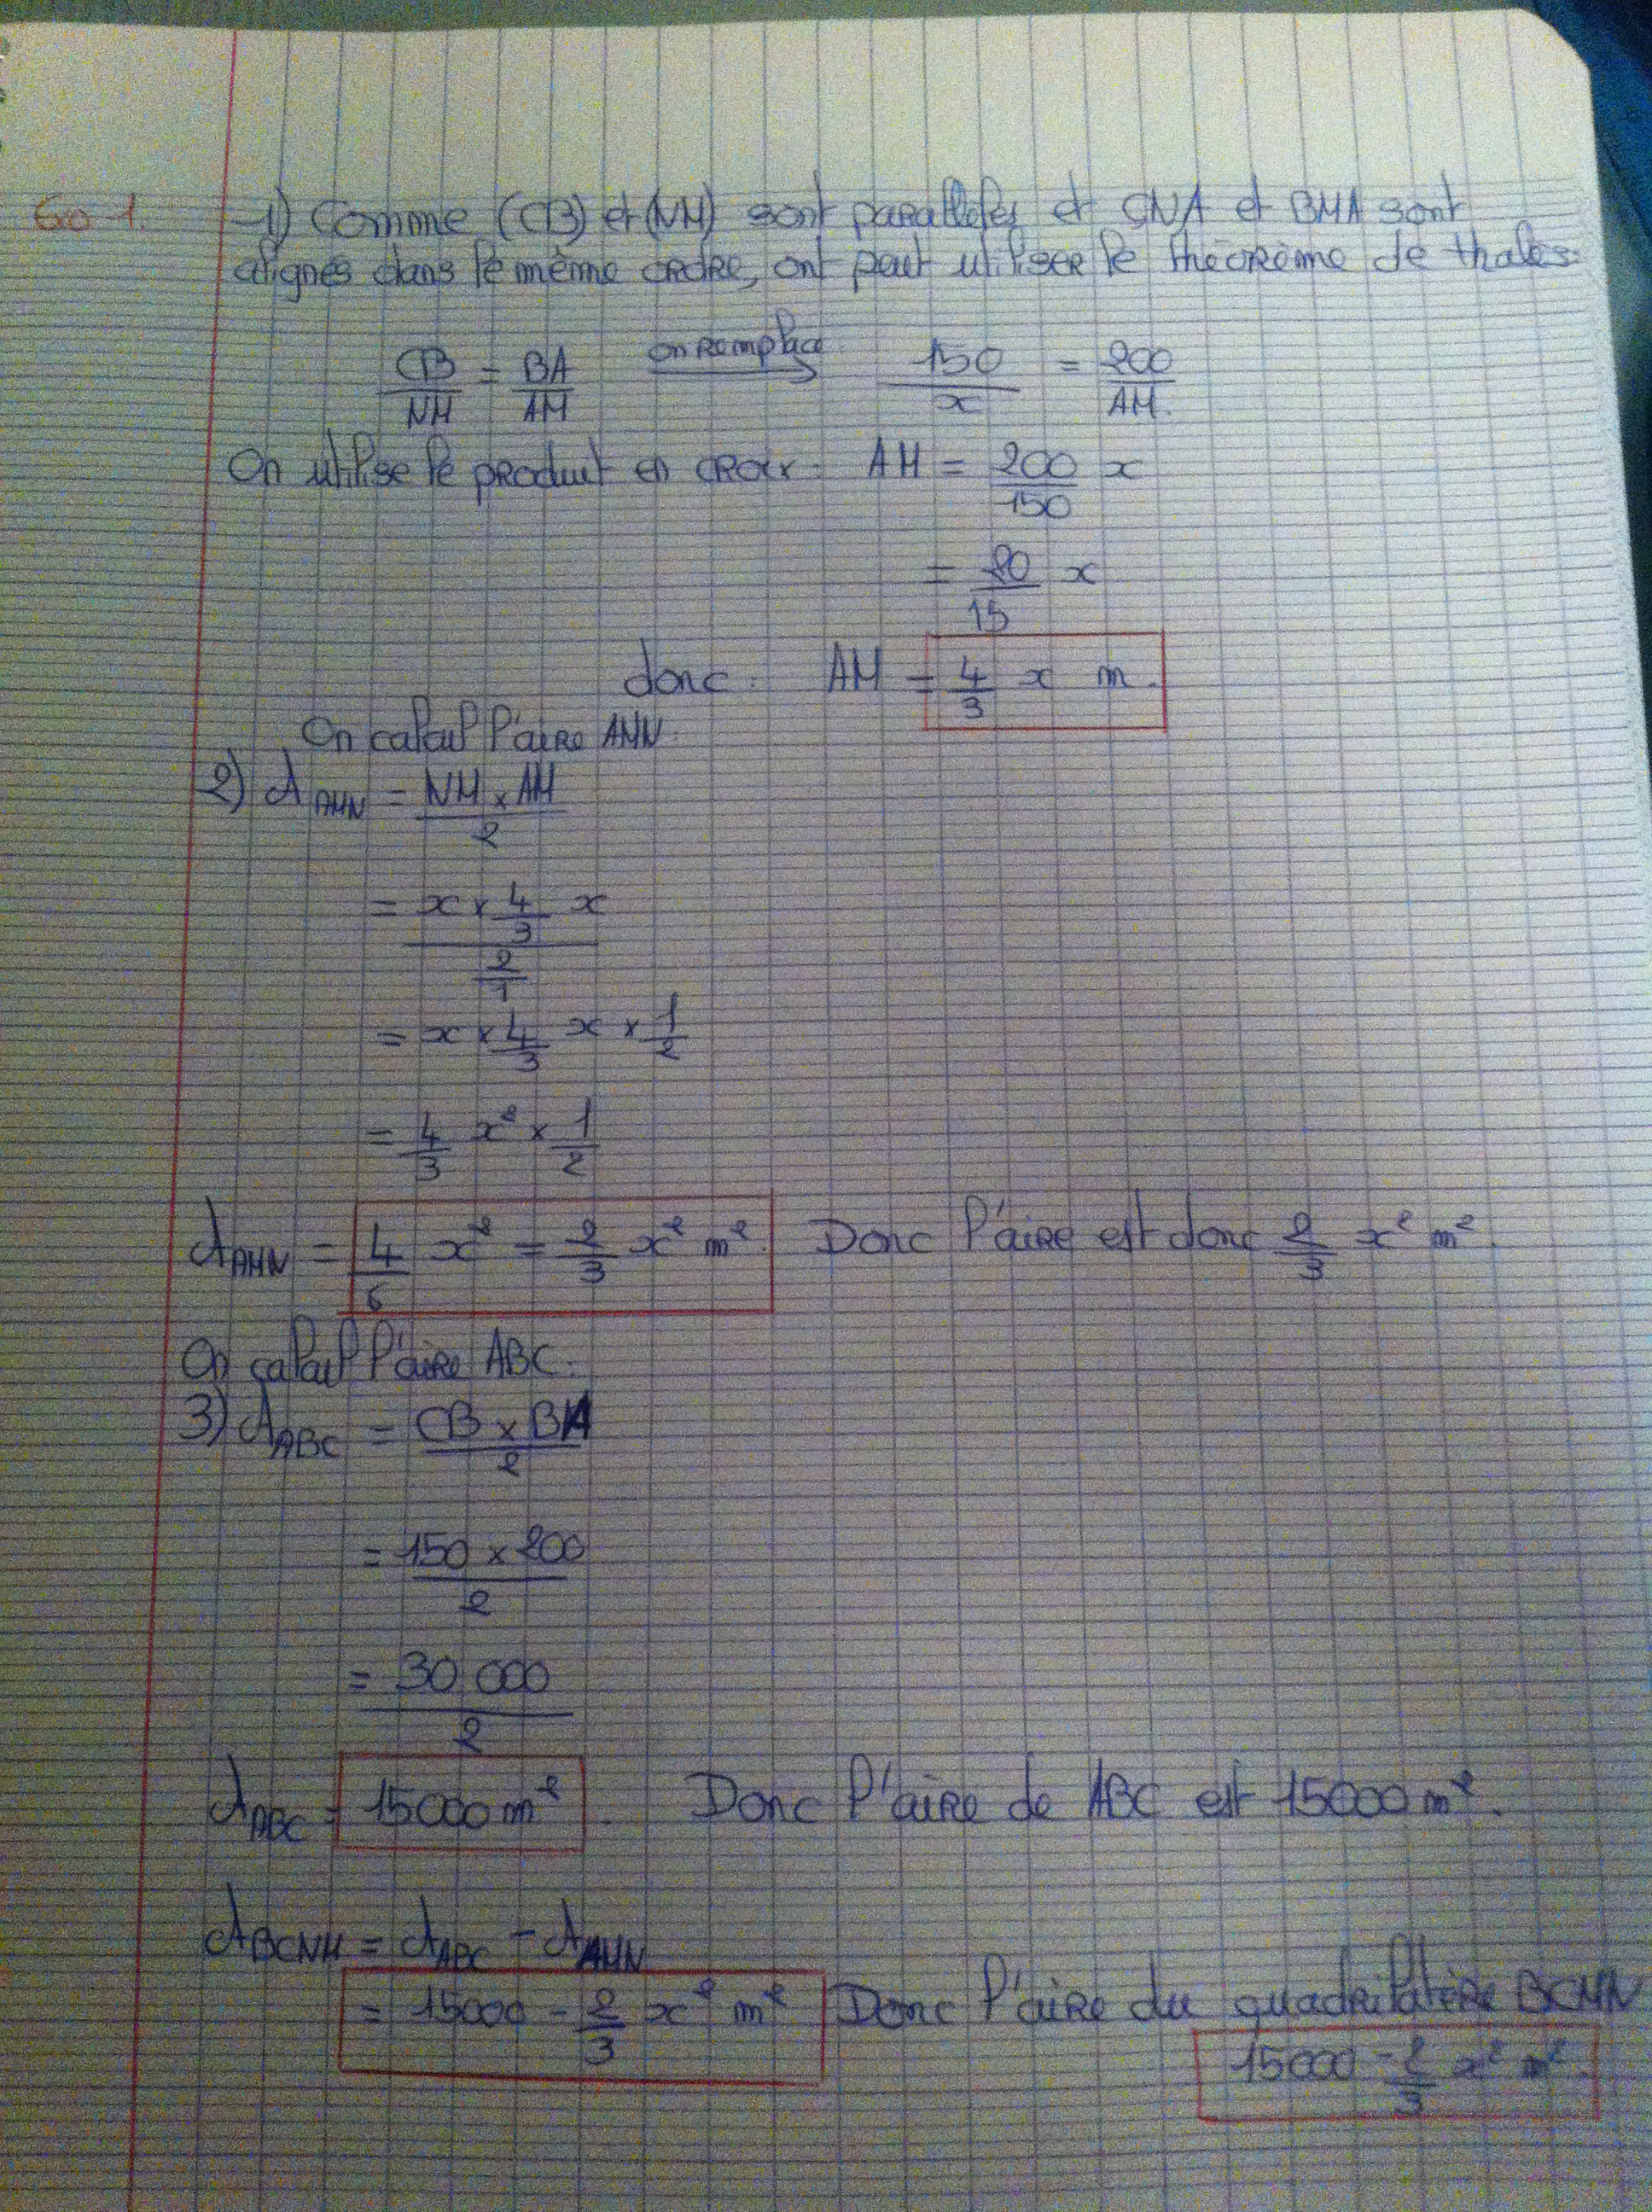 Exo 1.
1) Comme (CB) et (NM) sont parallèles et CNA et BMA sont
alignés dans le même ordre, ont peut utiliser le théorème de thalès.
CB/NM = BA/AM on remplace 150/x = 200/AM.
On utilise le produit en croix. AM = 200/150 x
= 20/15 x
donc : AM = 4/3 x m.
On calcul l'aire AMN.
2) A AMN = NM × AM / 2
= x × 4/3 x / 2/1
= x × 4/3 x × 1/2
= 4/3 x² × 1/2
A AMN = 4/6 x² = 2/3 x² m². Donc l'aire est donc 2/3 x² m².
On calcul l'aire ABC :
3) A ABC = CB × BA / 2
= 150 × 200 / 2
= 30 000 / 2
A ABC = 15000 m². Donc l'aire de ABC est 15000 m².
A BCNM = A ABC - A AMN
= 15000 - 2/3 x² m² Donc l'aire du quadrilatère BCMN
15000 - 2/3 x² m².